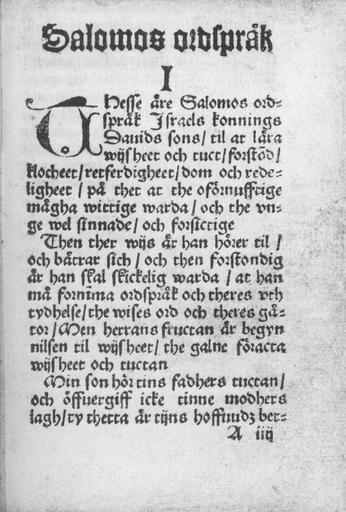 Salomos ordspråk
I
Thesse äre Salomos ord-
språk Israels konnings
Dauids sons/ til at lära
wijsheet och tuct/ forstõd/
klocheet/ retferdigheet/ dom och rede-
ligheet/ på thet at the oförnufftige
mågha wittige warda/ och the vn-
ge wel sinnade/ och forsictige
Then ther wijs är han hörer til/
och bätrar sich/ och then forstondig
är han skal skickelig warda/ at han
må fornima ordspråk och theres vth
tydhelse/ the wises ord och theres gå-
tor/ Men herrans fructan är begyn
nilsen til wijsheet/ the galne föracta
wijsheet och tuctan
Min son hör tins fadhers tuctan/
och öffuergiff icke tinne modhers
lagh/ ty thetta är tijns hoffuudz bet-
A iiij